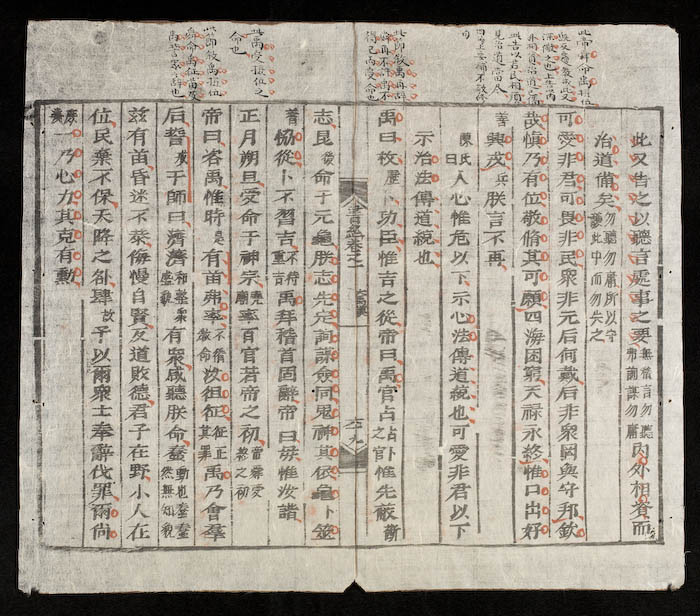 此又告之以聽言處事之要無稽言勿聽弗詢謀勿庸內外相資而
治道備矣勿聽勿庸所以守護此中而勿失之
可愛非君可畏非民衆非元后何戴后非衆罔與守邦欽
哉慎乃有位敬修其可願四海困窮天祿永終惟口出好
善興戎兵朕言不再
陳氏曰人心惟危以下示心法傳道統也可愛非君以下
示治法傳道統也
禹曰枚歷卜功臣惟吉之從帝曰禹官占占卜之官惟先蔽斷
志昆後命于元龜朕志先定詢謀僉同鬼神其依龜卜筮
書經卷之一
大禹謨
協從卜不習吉不待重吉禹拜稽首固辭帝曰毋惟汝諧
正月朔旦受命于神宗堯廟率百官若帝之初當舜受終之初
帝曰咨禹惟時是有苗弗率不循教命汝徂征征正其罪禹乃會羣
后誓戒于師曰濟濟和整衆盛貌有衆咸聽朕命蠢動也蠢蠢然無知貌
茲有苗昏迷不恭侮慢自賢反道敗德君子在野小人在
位民棄不保天降之咎肆故予以爾衆士奉辭伐罪爾尚
庶幾一乃心力其克有勳
此節敘禹再辭
此禹受攝位之
命也
此節敘禹攝位